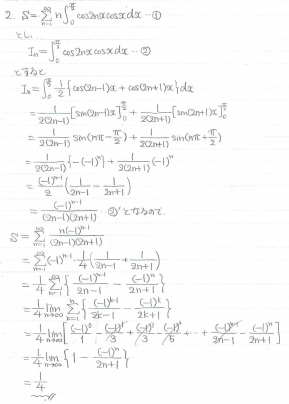 2. S=∑_{n=1}^{∞} n∫_0^{π/2} cos2nx cosx dx …①
とし、
I_n=∫_0^{π/2} cos2nx cosx dx …②
とすると
I_n=∫_0^{π/2} 1/2{cos(2n-1)x + cos(2n+1)x}dx
=1/2(2n-1) [sin(2n-1)x]_0^{π/2} + 1/2(2n+1) [sin(2n+1)x]_0^{π/2}
=1/2(2n-1) sin(nπ-π/2) + 1/2(2n+1) sin(nπ+π/2)
=1/2(2n-1) {-(-1)^n} + 1/2(2n+1) (-1)^n
=(-1)^{n-1}/2 (1/2n-1 - 1/2n+1)
=(-1)^{n-1}/(2n-1)(2n+1) …②' となるので、
S=∑_{n=1}^{∞} n(-1)^{n-1}/(2n-1)(2n+1)
=∑_{n=1}^{∞} (-1)^{n-1} 1/4 (1/2n-1 + 1/2n+1)
=1/4 ∑_{n=1}^{∞} {(-1)^{n-1}/2n-1 - (-1)^n/2n+1}
=1/4 lim_{n→∞} ∑_{k=1}^{n} {(-1)^{k-1}/2k-1 - (-1)^k/2k+1}
=1/4 lim_{n→∞} [(-1)^0/1 - (-1)^1/3 + (-1)^1/3 - (-1)^2/5 + … + (-1)^{n-1}/2n-1 - (-1)^n/2n+1]
=1/4 lim_{n→∞} {1 - (-1)^n/2n+1}
=1/4